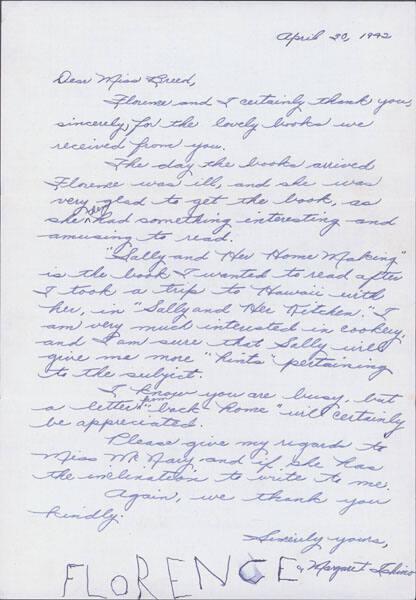 April 30, 1942
Dear Miss Breed,
Florence and I certainly thank you,
sincerely, for the lovely books we
received from you.
The day the books arrived
Florence was ill, and she was
very glad to get the book, as
she then had something interesting and
amusing to read.
"Sally and Her Home Making"
is the book I wanted to read after
I took a trip to Hawaii with
her, in "Sally and Her Kitchen." I
am very much interested in cookery,
and I am sure that Sally will
give me more "hints" pertaining
to the subject.
I know you are busy, but
a letter from "back home" will certainly
be appreciated.
Please give my regards to
Miss McNary and if she has
the inclination to write to me.
Again, we thank you
kindly.
Sincerely yours,
FLORENCE & Margaret Ishino